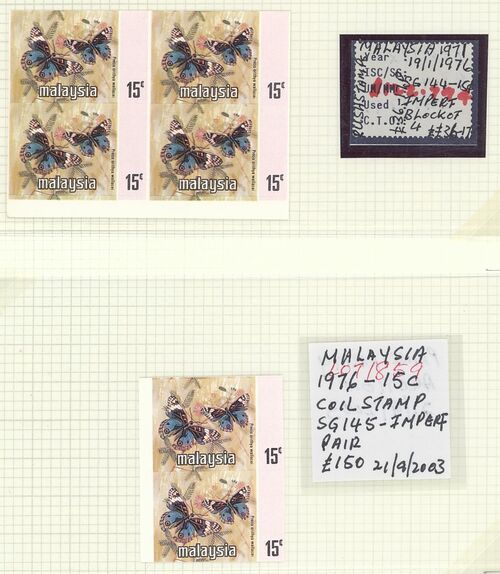 malaysia 15c
malaysia 15c
malaysia 15c
malaysia 15c
Precis orithya wallacei
Precis orithya wallacei
Precis orithya wallacei
Precis orithya wallacei
MALAYSIA 1971
Year 19/1/1976
ISC/SG SG144-
Used IMPERF
BLOCK OF
C.T.O. 4
MALAYSIA
1976-15C
COIL STAMP
SG145-IMPERF
PAIR
£150 21/9/2003
15c
malaysia
15c
malaysia
Precis orithya wallacei
Precis orithya wallacei